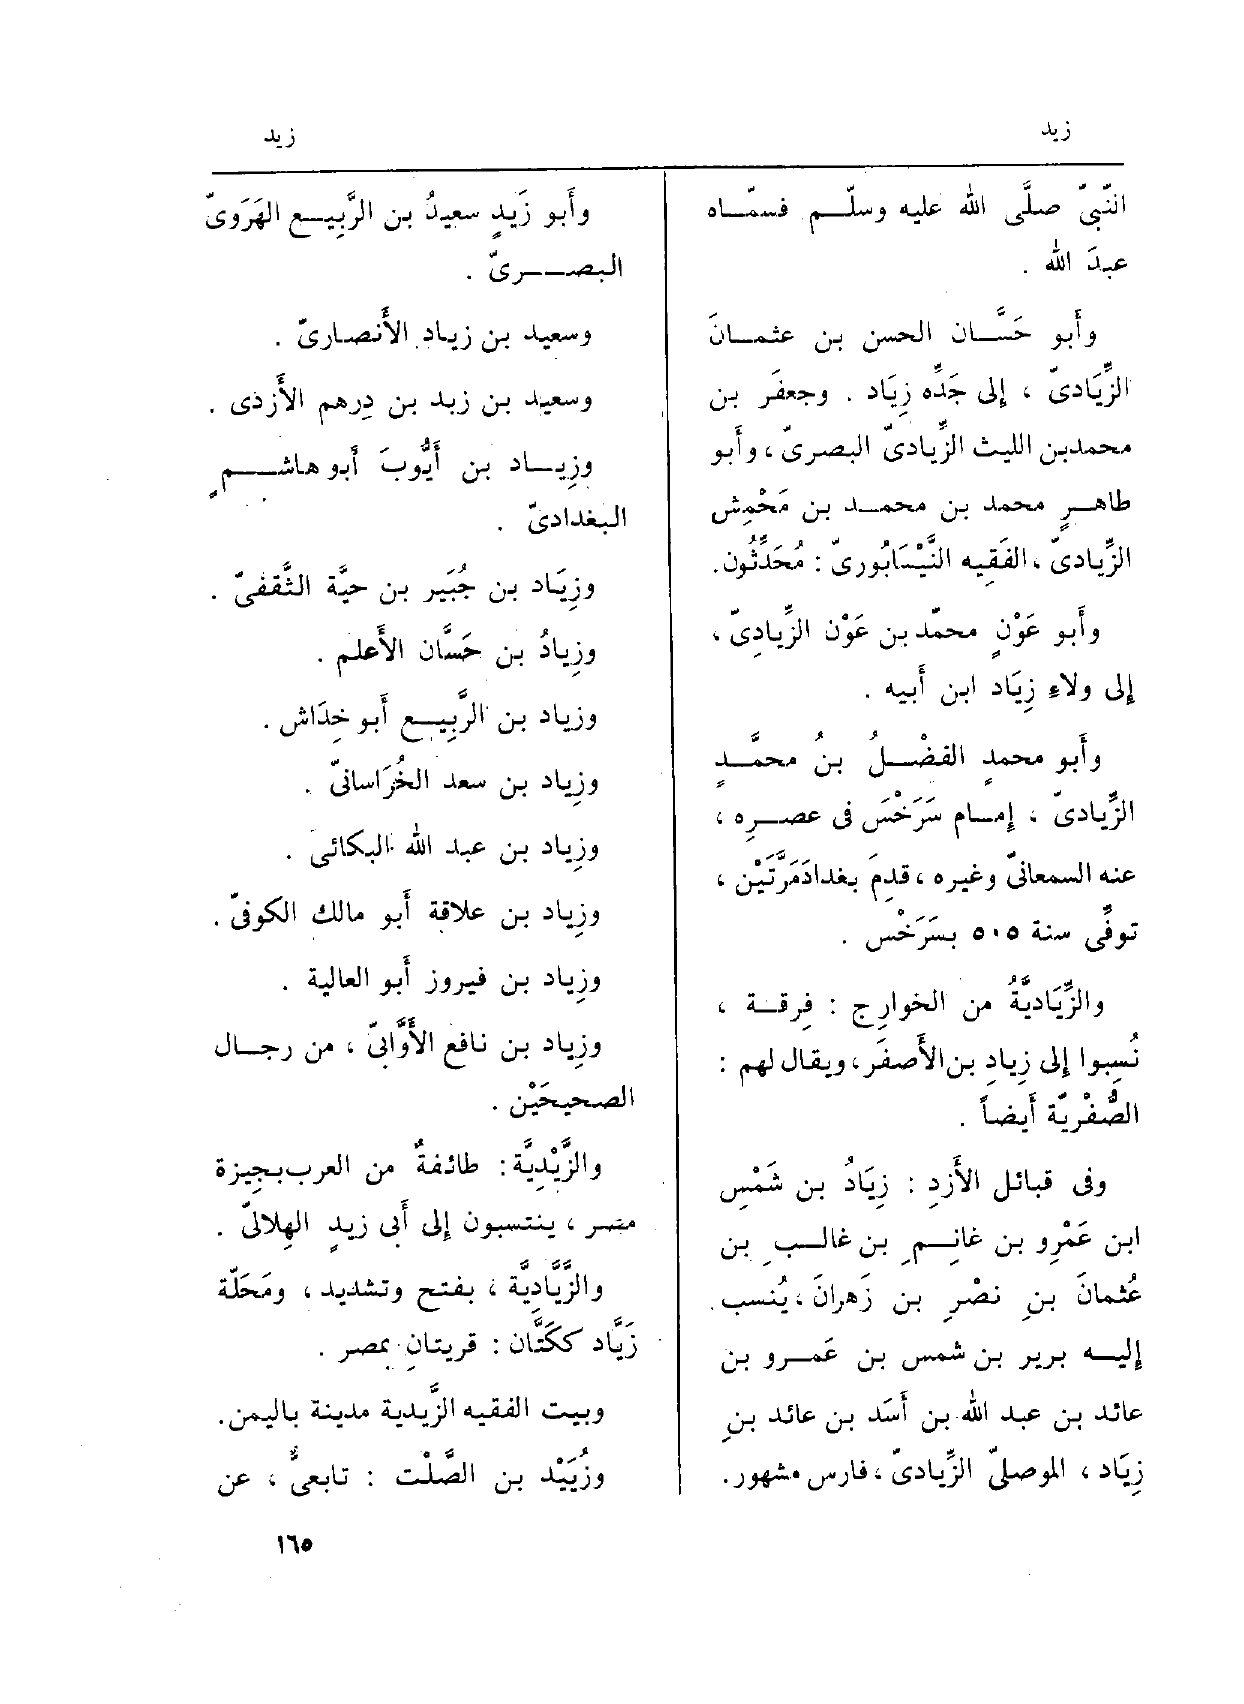 زيد
زيد
النّبيّ صلَّى الله عليه وسلّم فسمّاه
عبدَ الله .
وأَبو حَسَّان الحسن بن عثمانَ
الزِّيَاديّ ، إلى جَدِّه زِيَاد . وجعفَر بن
محمدبن الليث الزِّياديّ البصريّ ، وأَبو
طاهرٍ محمد بن محمد بن مَحْمِش
الزِّياديّ ، الفَقِيه النَّيْسَابُوريّ : مُحَدِّثُون .
وأَبو عَوْنٍ محمّد بن عَوْن الزِّيَادِيّ ،
إلى ولاءِ زِيَاد ابن أَبيه .
وأَبو محمدٍ الفضْلُ بنُ محمَّدٍ
الزِّياديّ ، إِمام سَرَخْسَ فى عصرِه ،
عنه السمعانىّ وغيره ، قدِمَ بغدادَمَرَّتَيْن ،
توفِّى سنة ٥٠٥ بسَرَخْس .
والزِّيَاديَّةُ من الخوارِج : فِرقة ،
نُسِبوا إلى زِيادِ بنِ الأَصفَر ، ويقال لهم :
الصُّفْريّة أَيضاً .
وفى قبائل الأَزدِ : زِيَادُ بن شَمْسِ
ابن عَمْرِو بن غانِمِ بن غالبِ بن
عُثمانَ بنِ نصْرِ بن زَهرانَ ، يُنسب
إليه برير بن شمس بن عَمرو بن
عائد بن عبد الله بن أَسَد بن عائد بنِ
زِيَاد ، الموصليّ الزِّيَاديّ ، فارس مشهور .
وأَبو زَيدٍ سعيدُ بن الرَّبِيع الهَرَوىّ
البصرىّ .
وسعيد بن زياد الأَنصارىّ .
وسعيد بن زيد بن دِرهم الأَزدى .
وزِياد بن أَيُّوبَ أَبو هاشمٍ
البغدادىّ .
وزِيَاد بن جُبَير بن حيَّة الثَّقفىّ .
وزِيادُ بن حَسَّان الأَعلم .
وزياد بن الرَّبِيع أَبو خِدَاش .
وزِياد بن سعد الخُرَاسانىّ .
وزِياد بن عبد الله البكائى .
وزِياد بن علاقة أَبو مالك الكوفىّ .
وزِياد بن فيروز أَبو العالية .
وزِياد بن نافع الأَوَّابىّ ، من رجال
الصحيحَيْن .
والزَّيْدِيَّة : طائفةٌ من العرب بجِيزة
مصر ، ينتسبون إلى أَبى زيدٍ الهِلالىّ .
والزَّيَّادِيَّة ، بفتح وتشديد ، ومَحَلّة
زَيَّاد ككَتَّان : قريتانِ بمصر .
وبيت الفقيه الزَّيدية مدينة باليمن .
وزُيَيْد بن الصَّلْت : تابعىٌّ ، عن
١٦٥